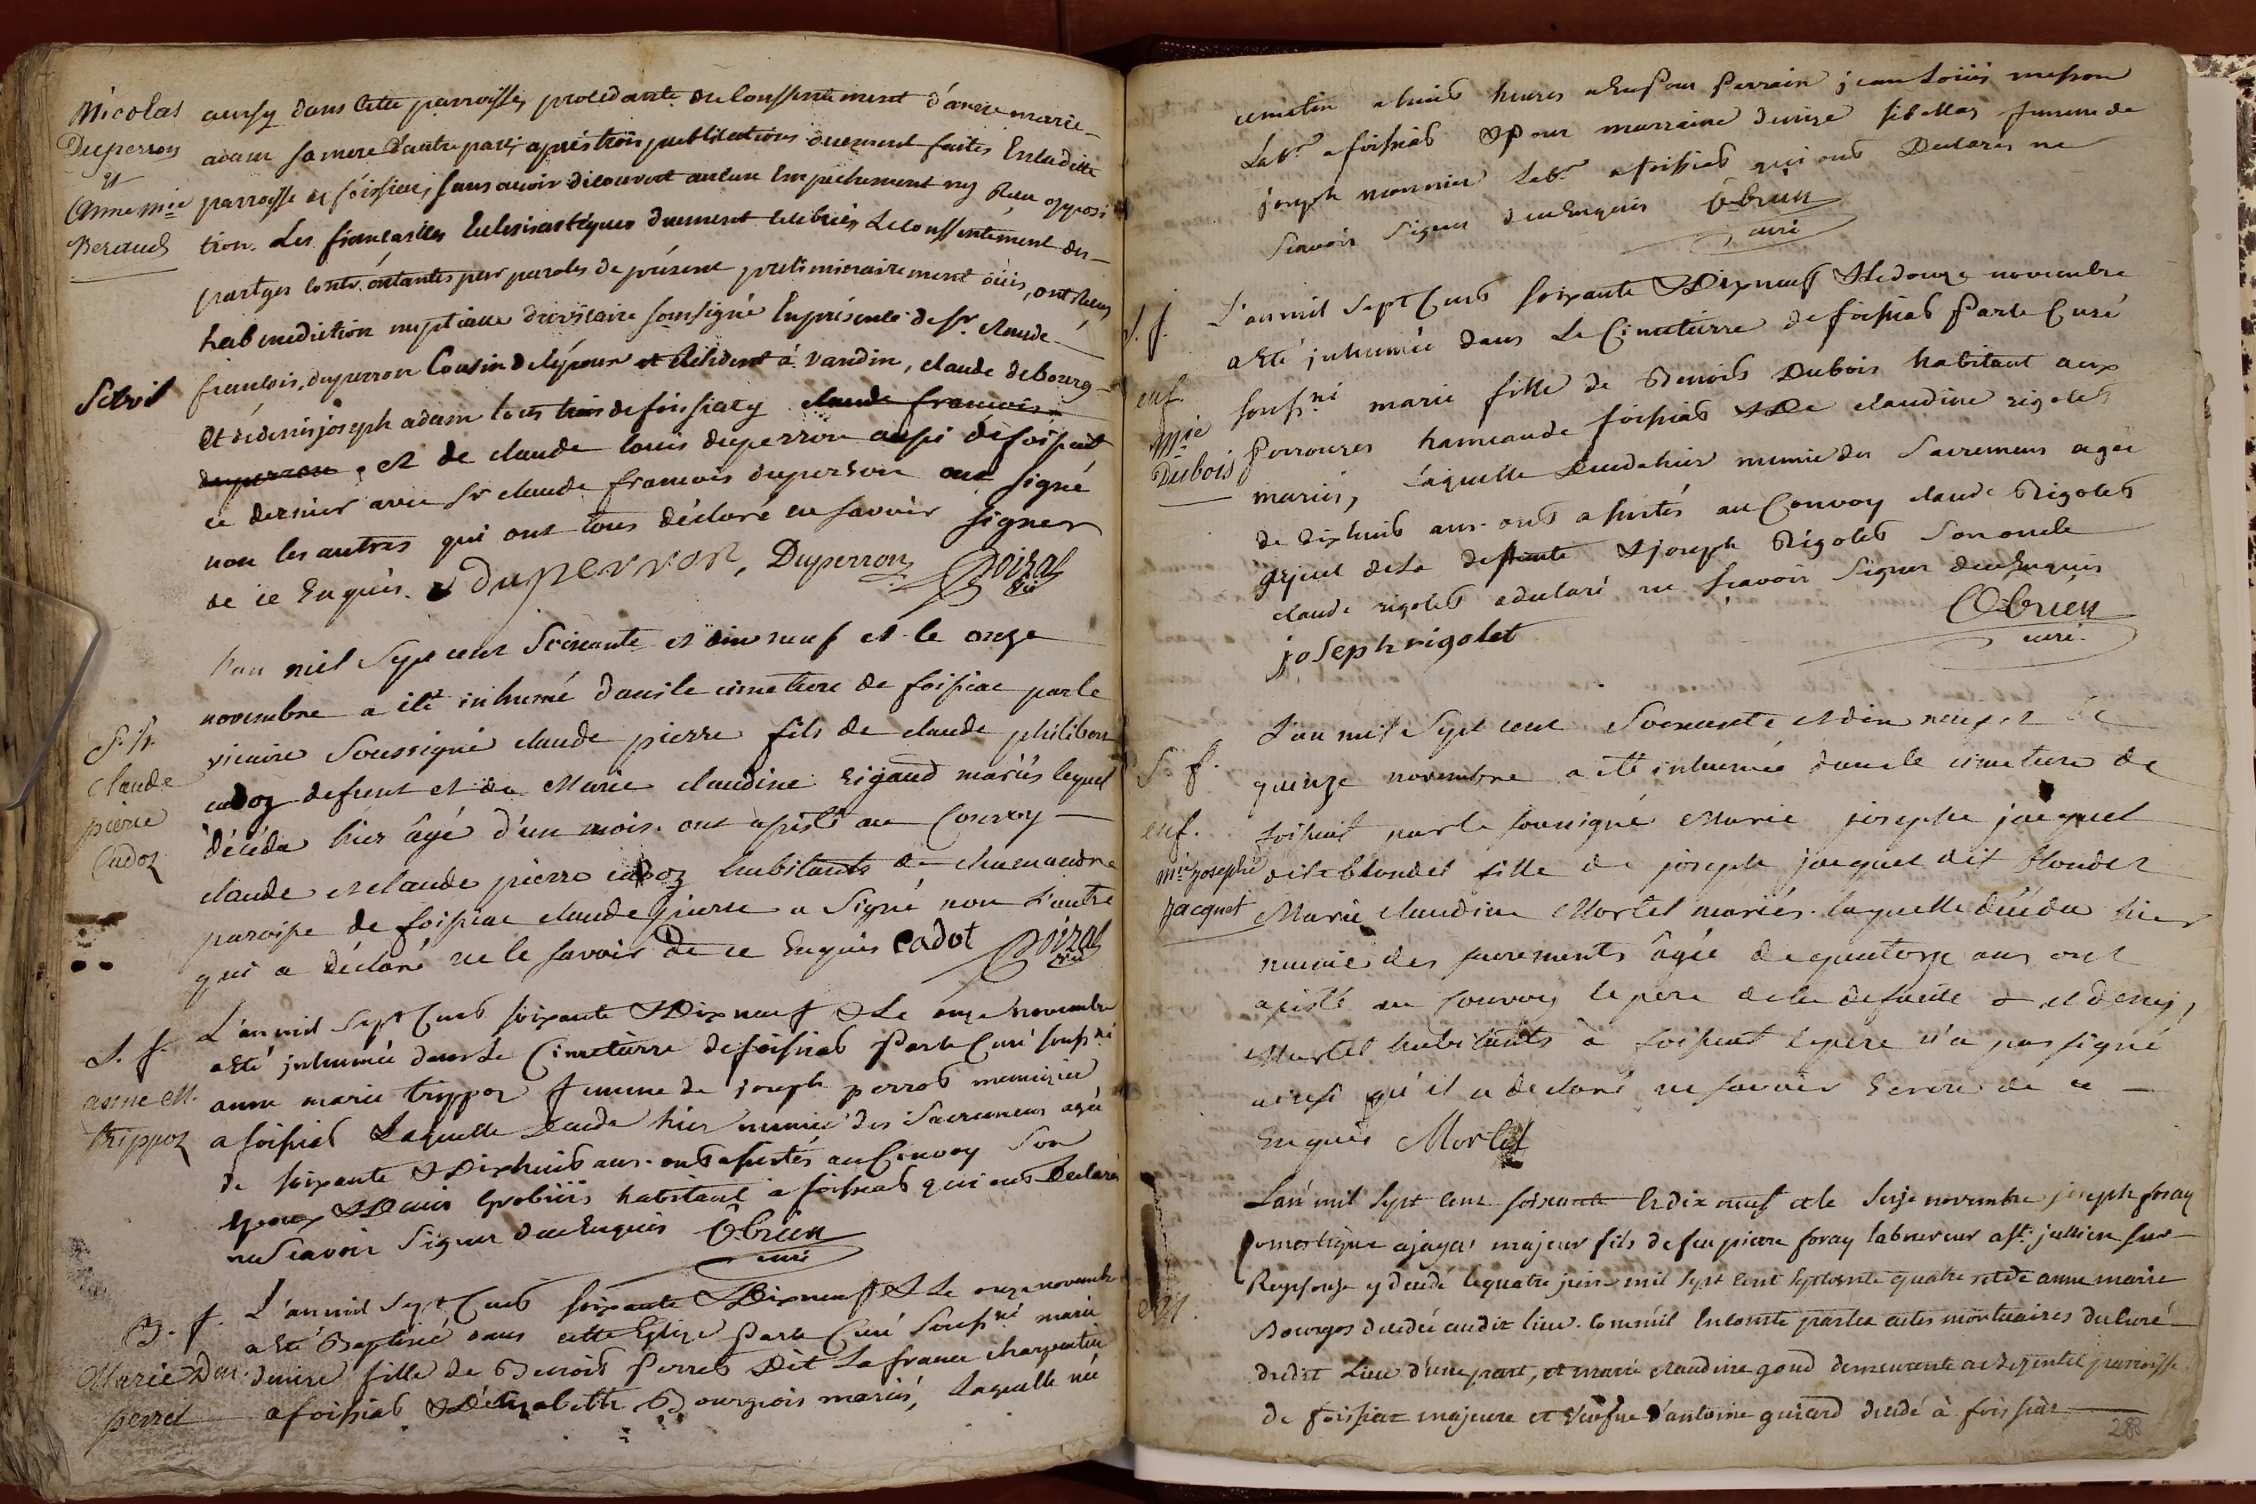 Nicolas
Duperron
et
Anne Mie
Beraud
aussy dans cette parroisse, procédante du conssentement d'anne marie
adam sa mere d'autre part, après trois publications duement faites En ladite
parroisse de foissiat, sans avoir découvert aucun Empechement ny Reçu opposi
tion. Les fiançailles Eclesiastiques duement célébrées Le conssentement des
partyes contractantes par paroles de présent préliminairement oüis, ont Reçu
la benediction nuptialle du vicaire soussigné En présence de Sr claude
francois duperron Cousin de l'époux et Résident à vandin, claude debourg
Et de denis joseph adam tous trois de foissiaty claude francois
duperron, et de claude louis duperron aussi de foissiat
ce dernier avec Sr claude francois duperron ont signé
non les autres qui ont tous déclaré ne savoir signer
de ce Enquis. duperron, Duperron Poizat
vic
S. f.
Claude
pierre
Cadoz
L'an mil Sept cent Soixante et dix neuf et le onze
novembre a été inhumé dans le cimetiere de foissiac par le
vicaire Soussigné claude pierre fils de claude philibert
cadoz defunt et de Marie claudine Rigaud mariés lequel
décéda hier âgé d'un mois. ont assisté au Convoy
claude et claude pierre cadoz habitants de
paroisse de foissiac claude pierre a Signé non l'autre
qui a déclaré ne le savoir De ce Enquis cadot Poizat
vic
S. f.
anne M.
trippoz
L'an mil Sept Cent soixante & Dix neuf & Le onze novembre
a Eté inhumée dans Le Cimetierre de foissiat Par le Curé souss.né
anne marie trippoz femme de joseph perrod
a foissiat Laquelle Deceda hier munie des Sacremens agée
de soixante & Dixhuit ans. ont assistés au Convoy Son
Epoux & Denis habitant a foissiat qui ont Declarés
ne Scavoir Signer de ce Enquis Ôbrien
curé
B. f.
Marie Den.
perret
L'an mil Sept Cent soixante & Dix neuf & Le onze novembre
a Eté Baptisée dans cette Eglise Par le Curé souss.né marie
denise fille de Benoit Perret Dit La france charpentier
a foissiat & D'Elizabeth Bourgeois mariés, Laquelle née
ce matin a huit heures a Eu Pour Parrain jean Loüis
Labr. a foissiat & Pour marraine denise femme de
joseph monnier Labr. a foissiat qui ont Declarés ne
Scavoir Signer de ce Enquis Ôbrien
curé
S. f.
enf.
Mie
Dubois
L'an mil Sept Cent soixante & Dix neuf & Le douze novembre
a Eté inhumée dans Le Cimetierre de foissiat Par le Curé
souss.né marie fille de Benoit Dubois habitant aux
hameau de foissiat & De claudine rigolet
mariés, Laquelle Deceda hier munie des Sacremens agée
de dixhuit ans. ont assistés au Convoy claude Rigolet
ayeul de La deffunte & joseph Rigolet Son oncle
claude rigolet a declaré ne scavoir Signer de ce Enquis
joseph rigolet
Ôbrien
curé
S. f.
enf.
Mie josephe
jacquet
L'an mil Sept cent Soixante et dix neuf et le
quinze novembre a été inhumée dans le cimetiere de
foissiat par le soussigné Marie josephe jacquet
dite blondet fille de joseph jacquet dit blondet
Marie claudine Mortel mariés. laquelle décéda hier
munie des sacrements âgée de quatorze ans ont
assisté au Convoy le pere de la defunte et denis
Mortel habitants à foissiat le pere n'a pas signé
ainsi qu'il a declaré ne savoir Ecrire de ce
Enquis Mortel
L'an mil sept cent soixante et dix neuf et le seize novembre joseph foray
Domestique a jayat majeur fils de feu pierre foray laboureur a St. jullien sur
Reyssouze y décédé le quatre juin mil sept cent septante quatre et de anne marie
Bourges décédée audit lieu. Comme il En conste par les actes mortuaires du curé
dudit Lieu d'une part, et marie claudine goud demeurante a parroisse
de foissiat majeure et veufve d'antoine guicard décédé à foissiat
283